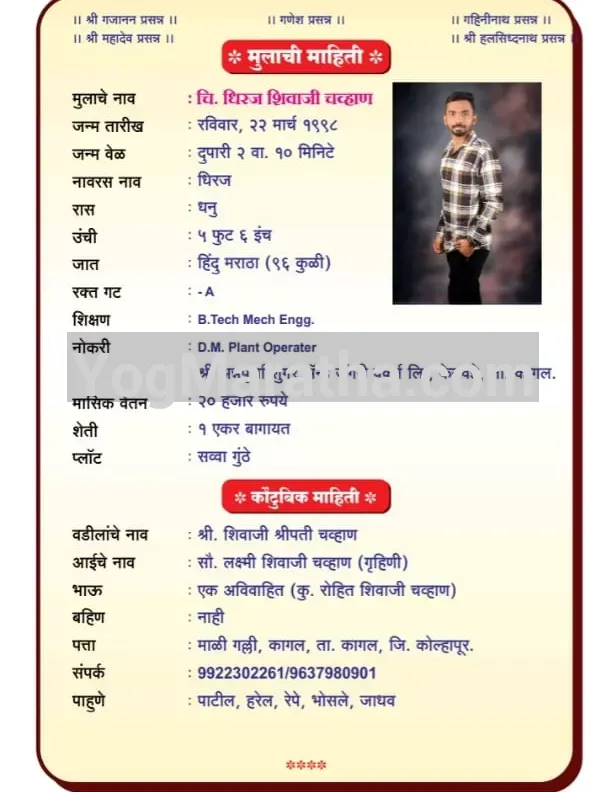 ।। श्री गजानन प्रसन्न ।। ।। गणेश प्रसन्न ।। ।। गहिनीनाथ प्रसन्न ।।
।। श्री महादेव प्रसन्न ।। ।। श्री हलसिध्दनाथ प्रसन्न ।।
❊ मुलाची माहिती ❊
मुलाचे नाव : चि. धिरज शिवाजी चव्हाण
जन्म तारीख : रविवार, २२ मार्च १९९८
जन्म वेळ : दुपारी २ वा. १० मिनिटे
नावरस नाव : धिरज
रास : धनु
उंची : ५ फुट ६ इंच
जात : हिंदु मराठा (९६ कुळी)
रक्त गट : - A
शिक्षण : B.Tech Mech Engg.
नोकरी : D.M. Plant Operater
श्री लि., ता. कागल.
YogMaratha.com
मासिक वेतन : २० हजार रुपये
शेती : १ एकर बागायत
प्लॉट : सव्वा गुंठे
❊ कौटुंबिक माहिती ❊
वडीलांचे नाव : श्री. शिवाजी श्रीपती चव्हाण
आईचे नाव : सौ. लक्ष्मी शिवाजी चव्हाण (गृहिणी)
भाऊ : एक अविवाहित (कु. रोहित शिवाजी चव्हाण)
बहिण : नाही
पत्ता : माळी गल्ली, कागल, ता. कागल, जि. कोल्हापूर.
संपर्क : 9922302261/9637980901
पाहुणे : पाटील, हरेल, रेपे, भोसले, जाधव
****